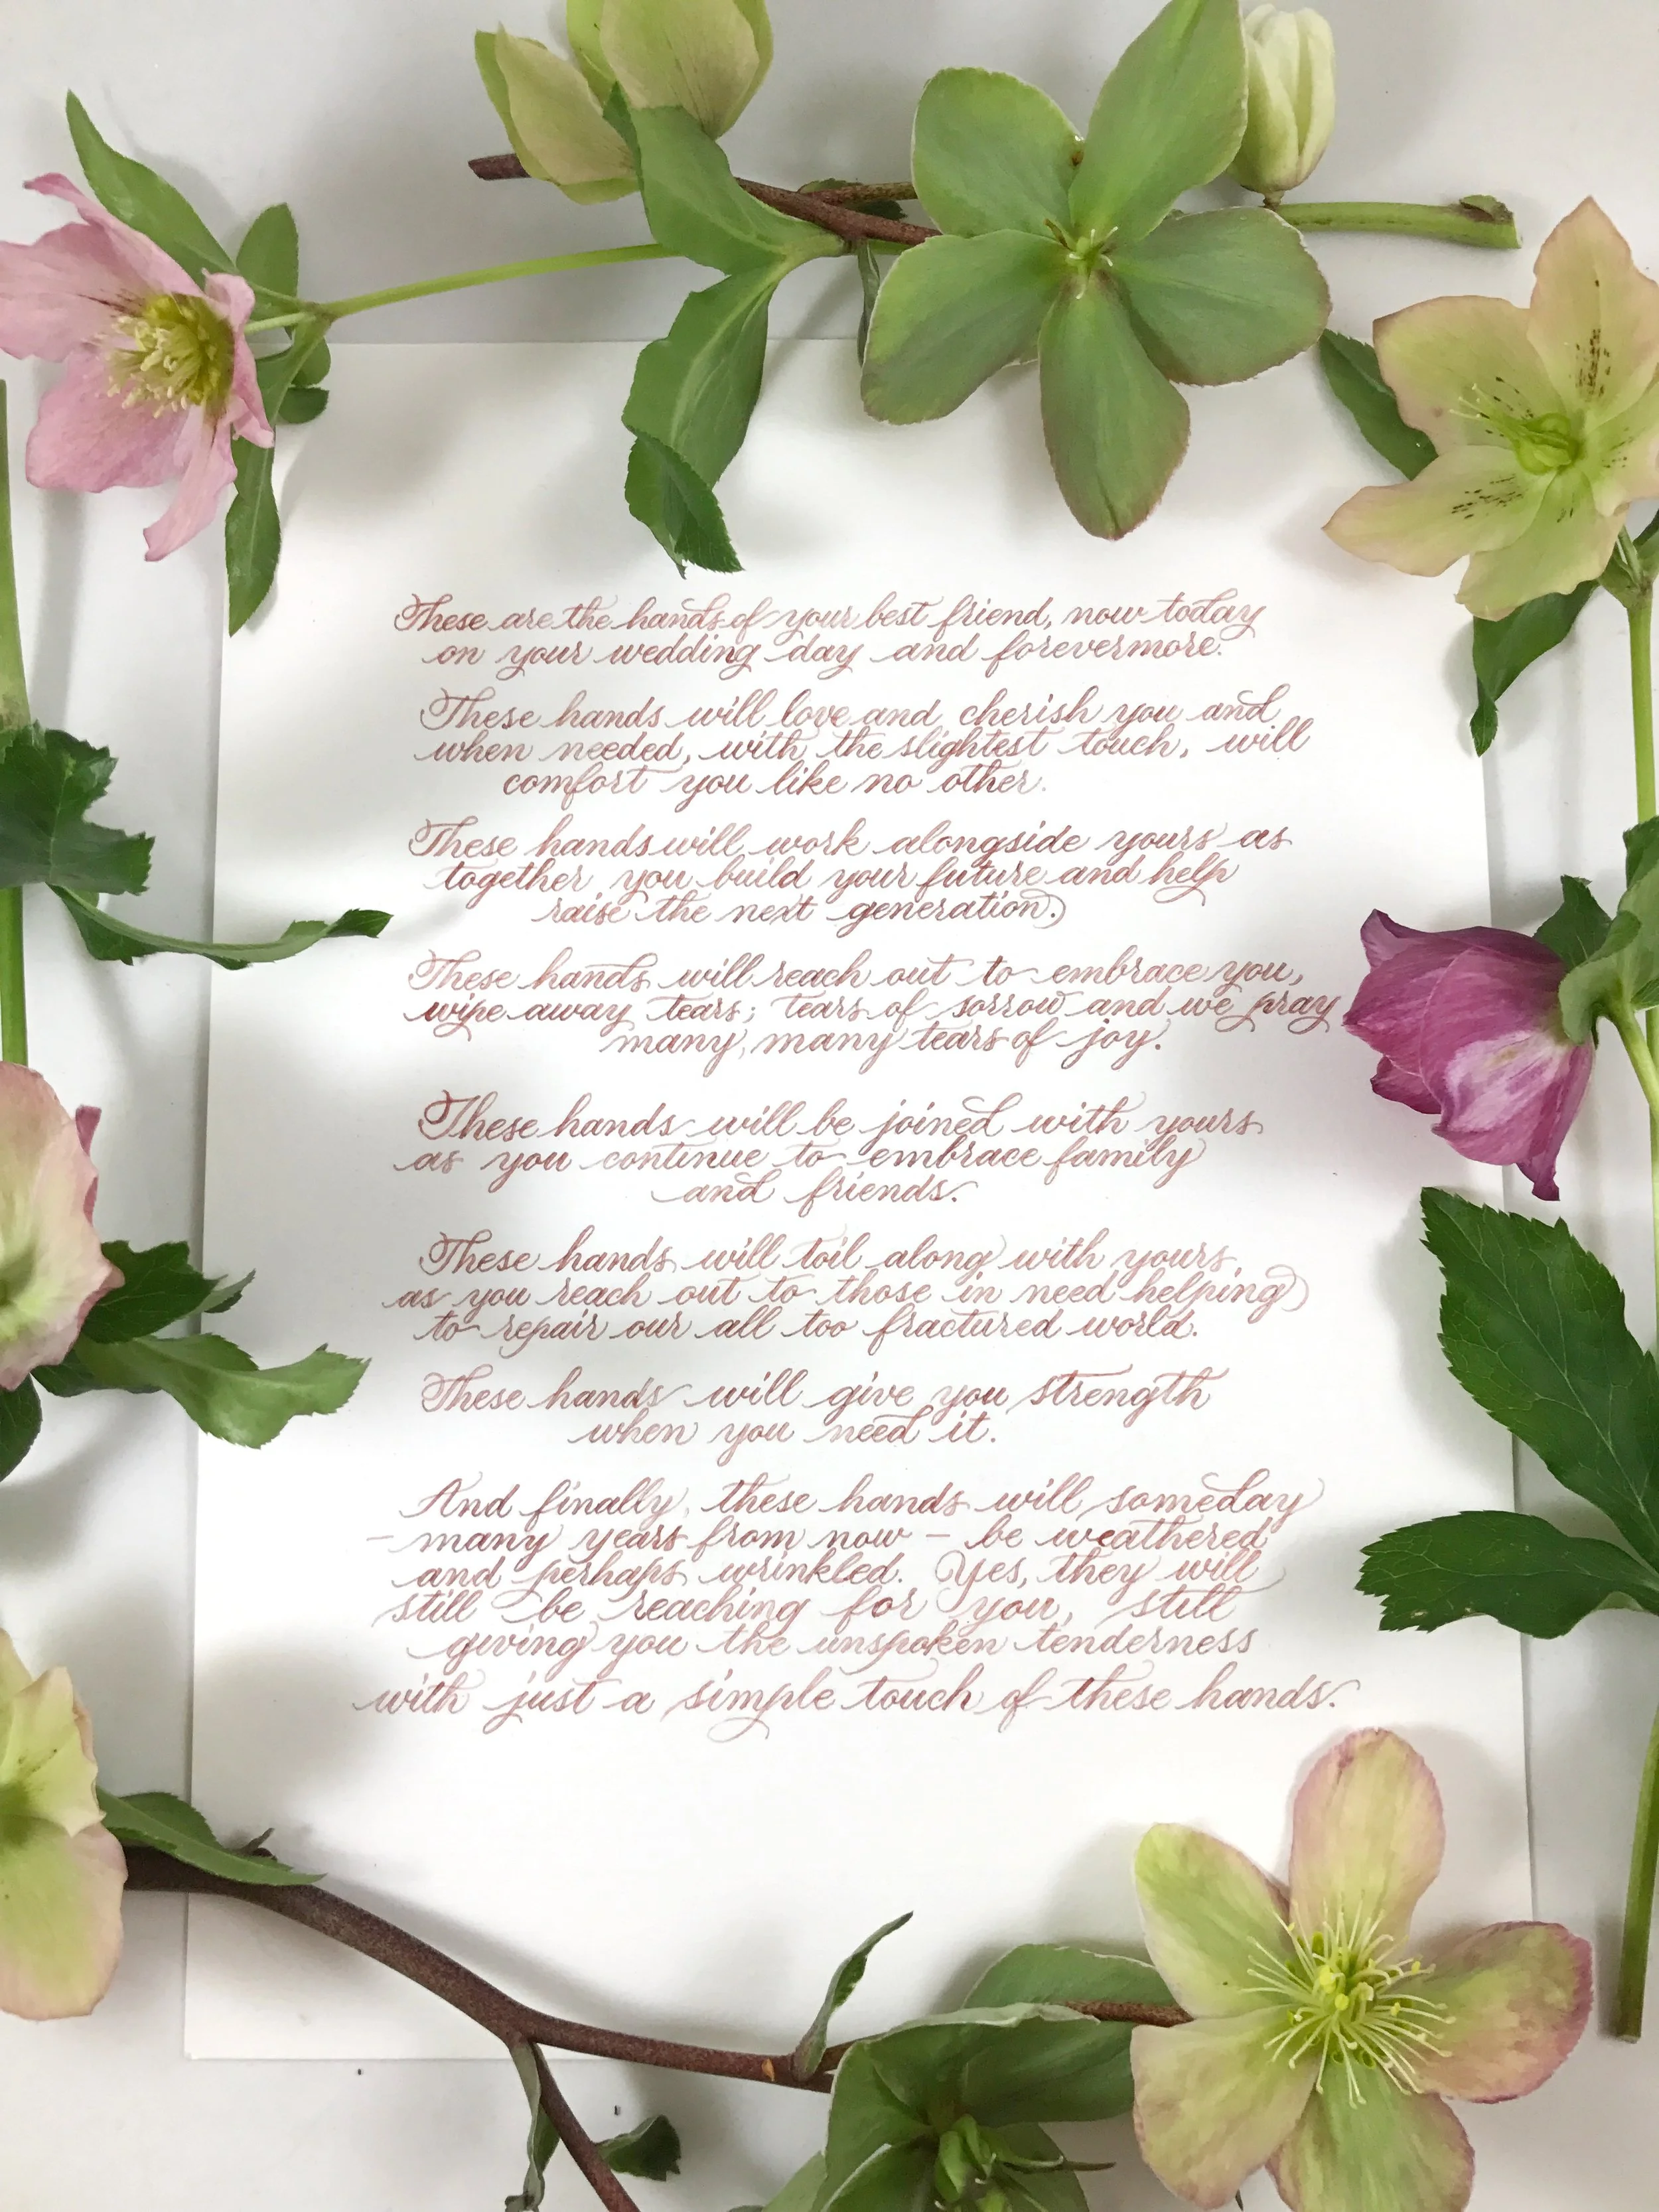 These are the hands of your best friend, now today
on your wedding day and forevermore.
These hands will love and cherish you and
when needed, with the slightest touch, will
comfort you like no other.
These hands will work alongside yours as
together you build your future and help
raise the next generation.
These hands will reach out to embrace you,
wipe away tears; tears of sorrow and we pray
many, many tears of joy.
These hands will be joined with yours
as you continue to embrace family
and friends.
These hands will toil along with yours,
as you reach out to those in need helping
to repair our all too fractured world.
These hands will give you strength
when you need it.
And finally, these hands will, someday
– many years from now – be weathered
and perhaps wrinkled. Yes, they will
still be reaching for you, still
giving you the unspoken tenderness
with just a simple touch of these hands.